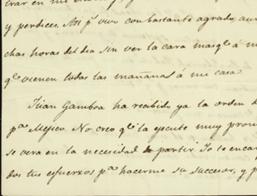 trar en mi
y perdices. Aus pª vivir con bastante agrado, aun
chas horas del dia sin ver la cara mas qº á m
qº vienen todas las mañanas á mi casa.
Juan Gamboa ha recibido ya la orden d
pª Mejico. No creo qº la ejecute muy pron
se vera en la necesidad de partir. Yo te encar
dos tus esfuerzos pª hacerme su succesor, y p